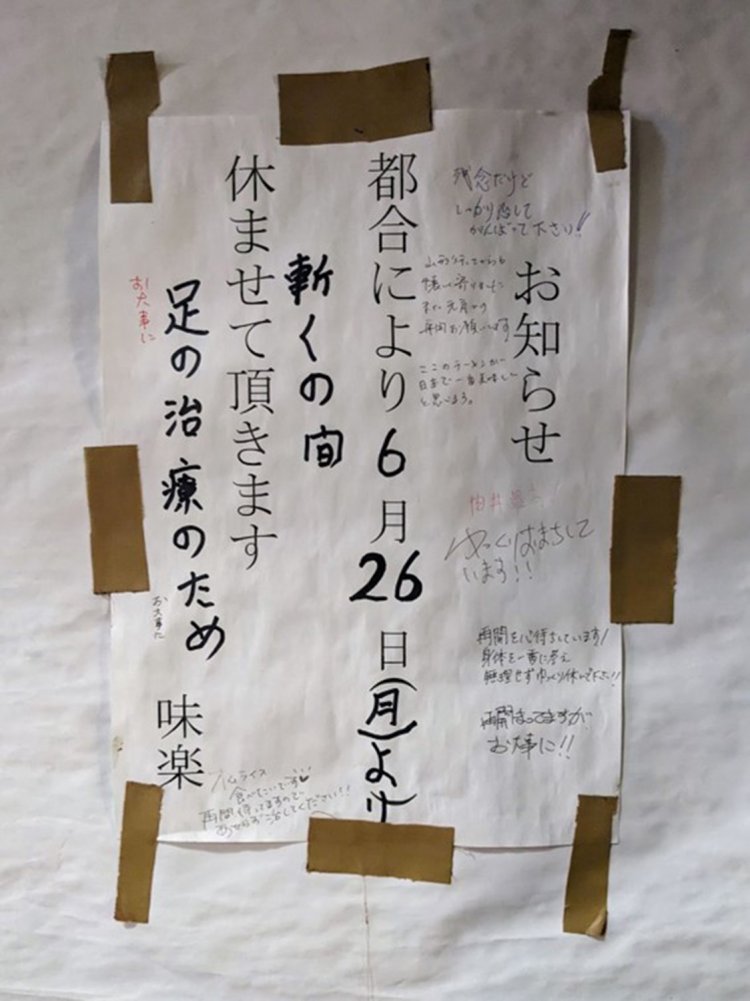 お知らせ
都合により6月26日(月)より
暫くの間
休ませて頂きます
足の治療のため
味楽
残念だけど
しっかり治して
がんばって下さい!!
山形行ってからも
懐しく寄りました
再開お願いします
ここのラーメンが
日本で一番美味しい
と思べる。
ゆっくりはまちして
います!!
再開を心待ちしています!
身体を一番に考え
無理せずゆっくり休んで下さい!!
再開まってますが
お大事に!!
お大事に
お大事に
ハムライス
食べたいです♥
再開待ってますので
あせらず治してください!!